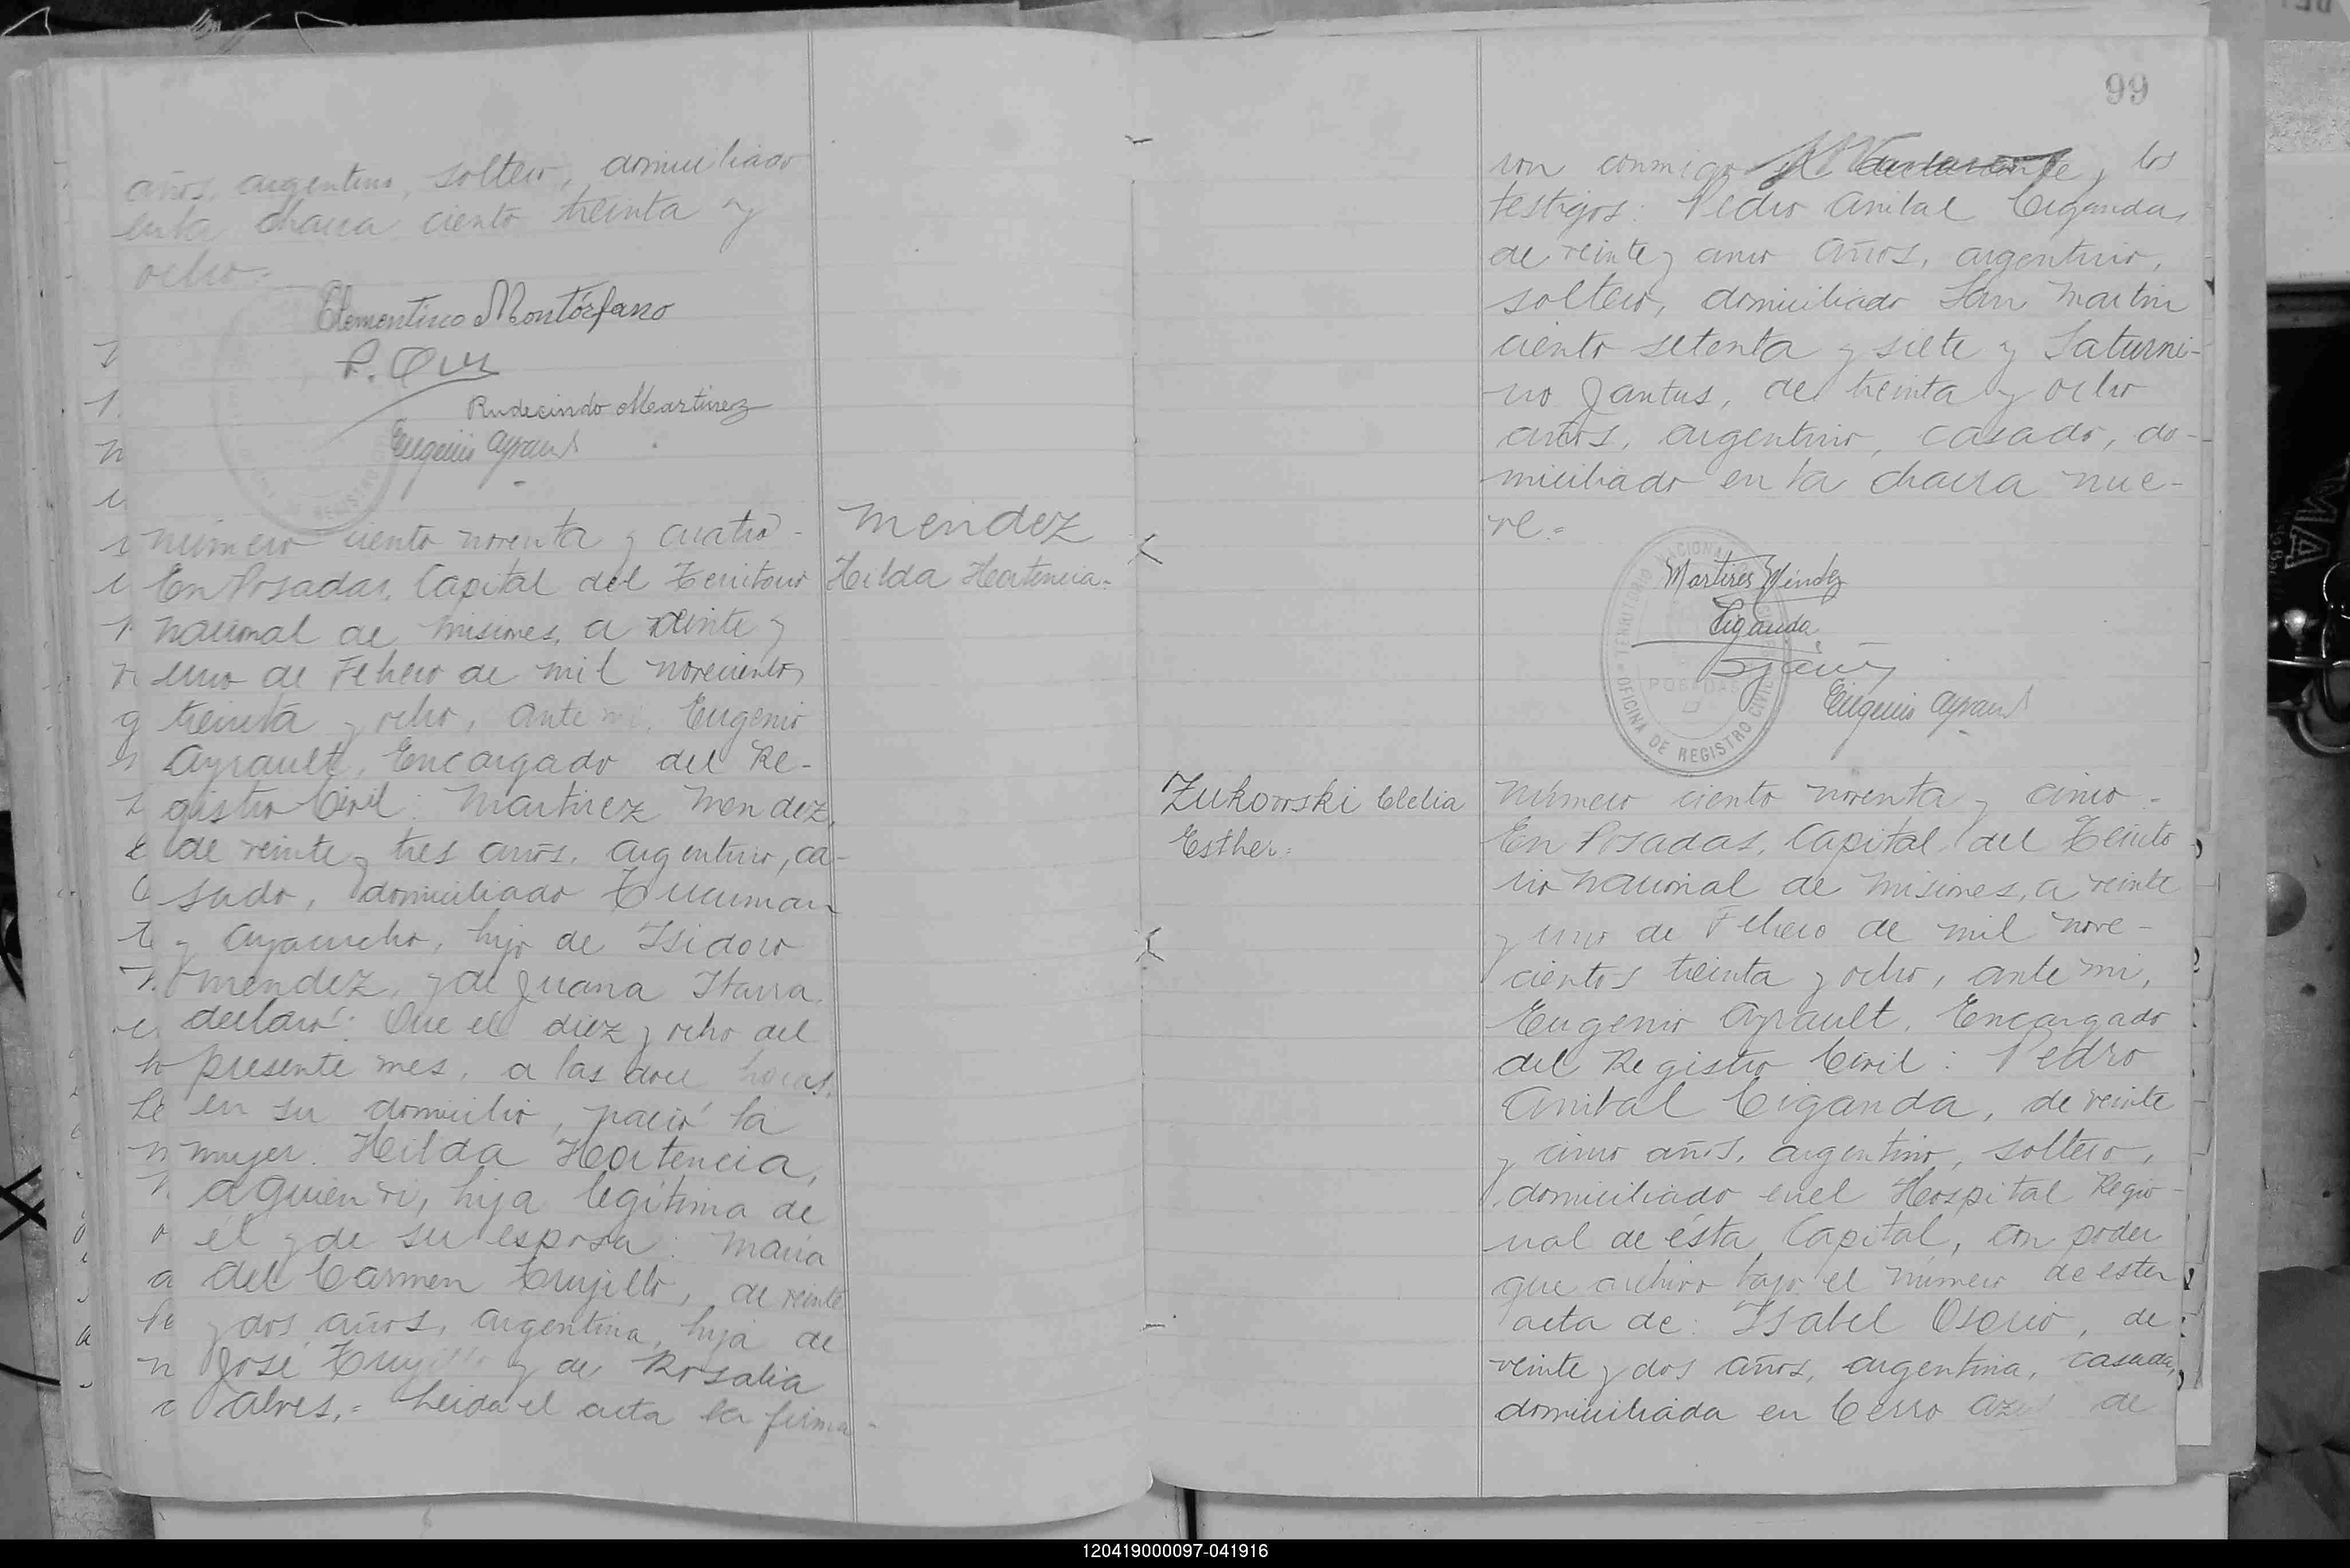 años, argentino, soltero, domiciliado
en la chacra ciento treinta y
ocho.-
Clementino Montórfano
Rudecindo Martinez
Eugenio Ayrault
Número ciento noventa y cuatro -
En Posadas, Capital del Territorio
nacional de Misiones, a veinte y
uno de Febrero de mil novecientos
treinta y ocho, ante mi, Eugenio
Ayrault, Encargado del Re-
gistro Civil: Martirez Mendez,
de veinte y tres años, argentino, ca-
sado, domiciliado Tucuman
y Ayacucho, hijo de Isidoro
Mendez, y de Juana Ibarra,
declaró: Que el diez y ocho del
presente mes, a las doce horas,
en su domicilio, nació la
mujer: Hilda Hortencia,
a quien vi, hija legítima de
él y de su esposa: Maria
del Carmen Trujillo, de veinte
y dos años, argentina, hija de
José Trujillo y de Rosalia
Alves.= Leida el acta la firma-
Mendez
Hilda Hortencia.-
99
ron conmigo y los
testigos: Pedro Anibal Ciganda,
de veinte y cinco años, argentino,
soltero, domiciliado San Martin
ciento setenta y siete y Saturni-
no Jantus, de treinta y ocho
años, argentino, casado, do-
miciliado en la chacra nue-
ve.=
Martires Méndez
Ciganda
Eugenio Ayrault
TERRITORIO NACIONAL
OFICINA DE REGISTRO CIVIL
POSADAS
Zukowski Clelia
Esther=
Número ciento noventa y cinco =
En Posadas, Capital del Territo
rio nacional de Misiones, a veinte
y uno de Febrero de mil nove-
cientos treinta y ocho, ante mi,
Eugenio Ayrault, Encargado
del Registro Civil: Pedro
Anibal Ciganda, de veinte
y cinco años, argentino, soltero,
domiciliado en el Hospital Regio-
nal de ésta Capital, con poder
que archivo bajo el número de esta
acta de: Isabel Osorio, de
veinte y dos años, argentina, casada,
domiciliada en Cerro Azul de
120419000097-041916